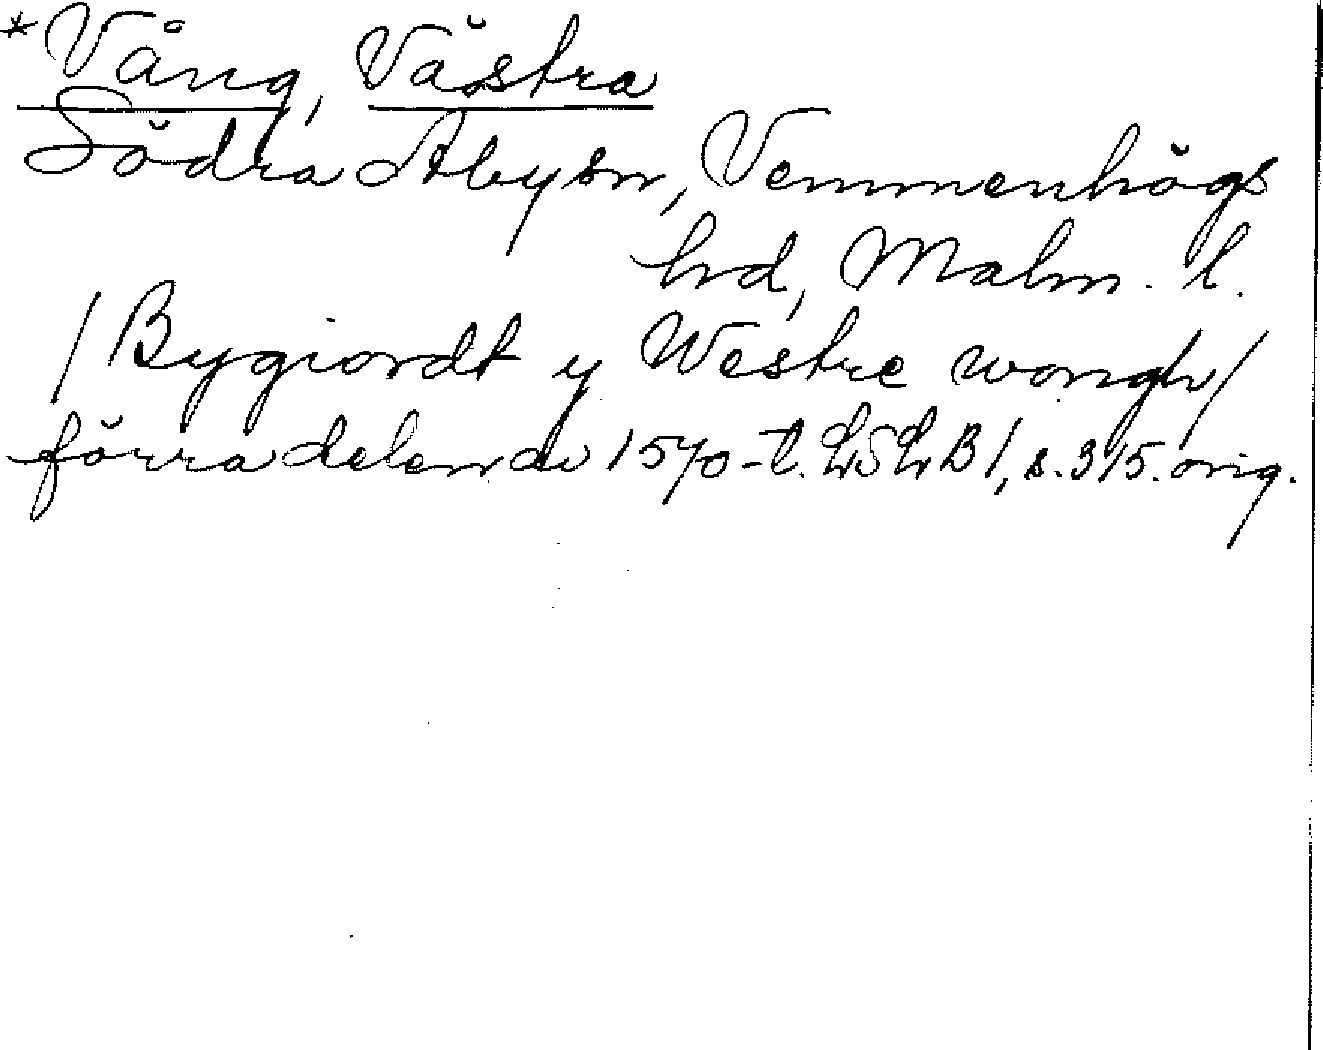 *Vång, Västra
Södra Åby sn, Vemmenhögs
hd, Malm. l.
/Bygiordt y Westre wongh/
förra delen av 1570-t. LSLB 1, s. 315. orig.